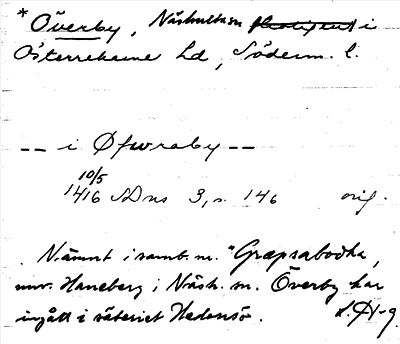 *Överby, Näshulta sn i
Österrekarne hd, Söderm. l.
-- i Øfwraby --
10/5
1416 SDns 3, s. 146 orig.
Nämnt i samb. m. *Græpsabodha,
nuv. Haneberg i Näsh. sn. Överby har
ingått i säteriet Hedensö.